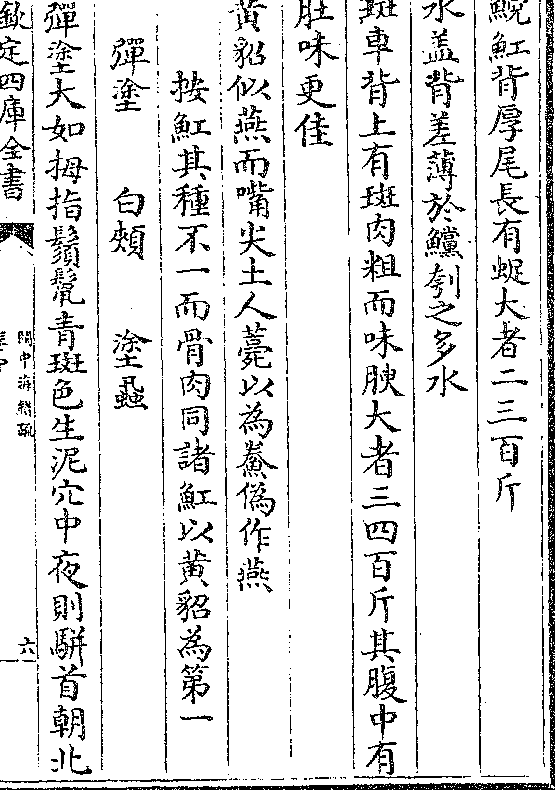 鯇魟背厚尾長有蜺大者二三百斤
水盖背差薄於鱹刳之多水
斑車背上有斑肉粗而味腴大者三四百斤其腹中有
肚味更佳
黄貂似燕而嘴尖土人薧以為鮝偽作燕
按魟其種不一而骨肉同諸魟以黄貂為第一
彈塗 白頰 塗蝨
彈塗大如拇指鬚鬛青斑色生泥穴中夜則駢首朝北
欽定四庫全書
閩中海錯疏
六